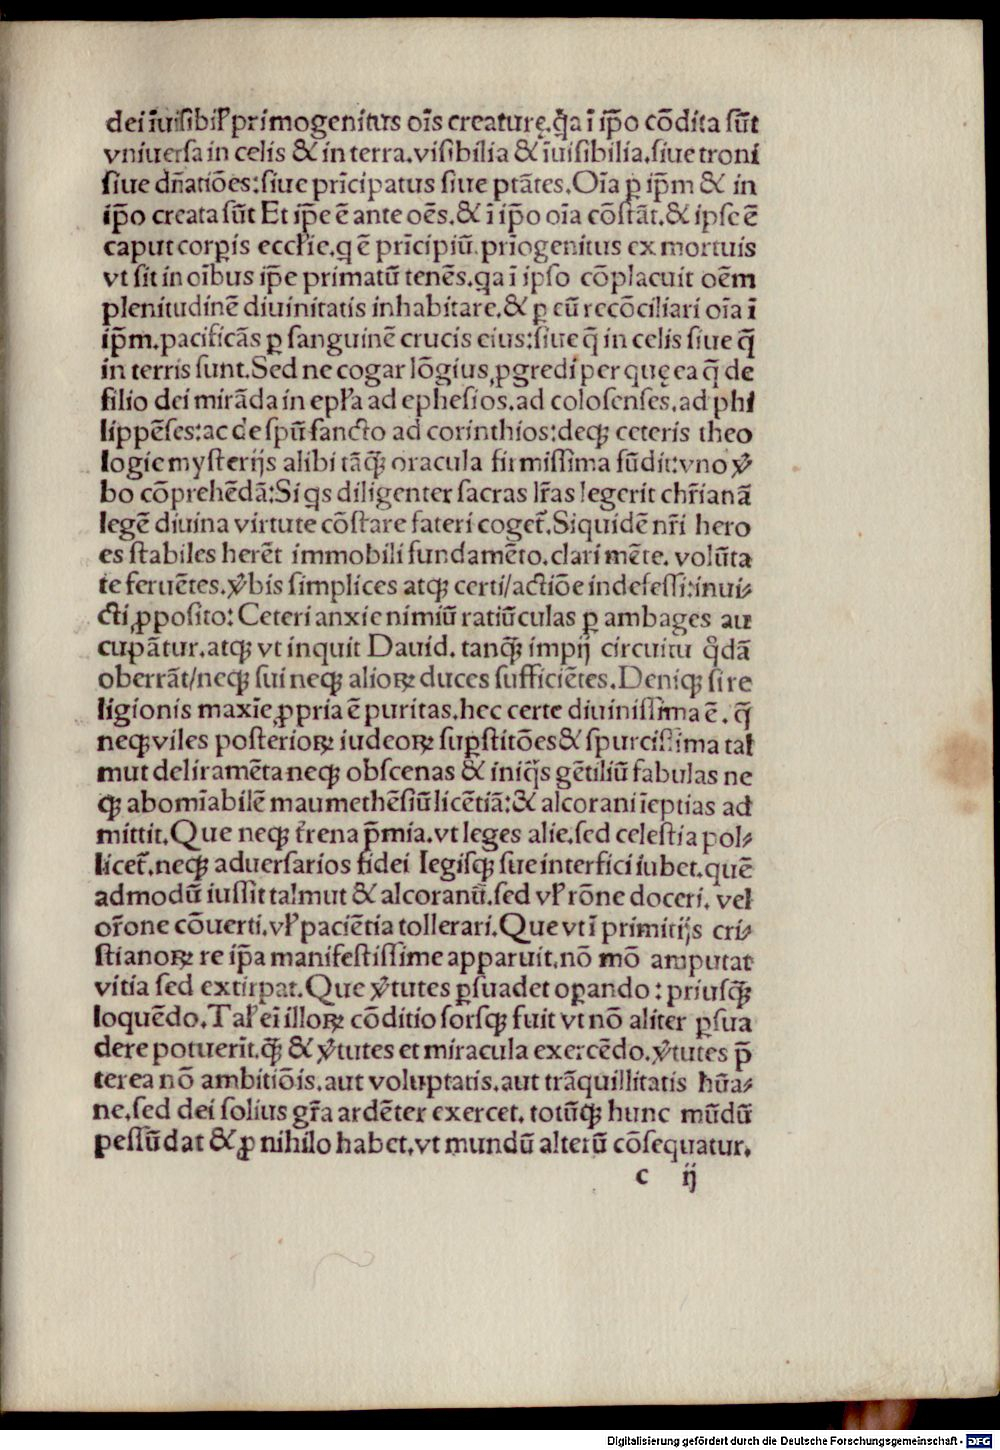 dei īuisibił primogenitus oı̄s creaturę. q̄a ī ip̄o cōdita sūt
vniuersa in celis & in terra. visibilia & īuisibilia. siue troni
siue dn̄atiōes: siue prīcipatus siue ptātes. Oı̄a ꝑ ip̄m & in
ip̄o creata sūt Et ip̄e ē ante oēs. & ī ip̄o oı̄a cōstāt. & ipse ē
caput corꝑis eccłie. q ē prīcipiū. prīogenitus ex mortuis
vt sit in oı̄bus ip̄e primatū tenēs. qa ī ipso cōplacuit oēm
plenitudinē diuinitatis inhabitare. & ꝑ eū recōciliari oı̄a ī
ip̄m. pacificās ꝑ sanguinē crucis eius: siue q̄ in celis siue q̄
in terris sunt. Sed ne cogar lōgius ꝓgredi per quę ea q̄ de
filio dei mirāda in epła ad ephesios. ad colosenses. ad phi
lippēses: ac de spū sancto ad corinthios: deqꝫ ceteris theo
logie mysterijs alibi tāqꝫ̄ oracula firmissima fūdit: vno ꝟ
bo cōprehēdā: Si qͥs diligenter sacras lr̄as legerit chr̄ianā
legē diuina virtute cōstare fateri coget̄. Siquidē nr̄i hero
es stabiles herēt immobili fundamēto. clari mēte. volūta
te feruētes. ꝟbis simplices atqꝫ certi/ actiōe indefessi: inui⸗
cti ꝓposito: Ceteri anxie nimiū ratiūculas ꝑ ambages au
cupātur. atqꝫ vt inquit Dauid. tanqꝫ̄ impij circuitu qͦdā
oberrāt/ neqꝫ sui neqꝫ alioꝝ duces sufficiētes. Deniqꝫ si re
ligionis maxīe ꝓpria ē puritas. hec certe diuinissima ē. q̄
neqꝫ viles posterioꝝ iudeoꝝ suꝑstitōes & spurcissima tal
mut deliramēta neqꝫ obscenas & iniqͣs gētiliū fabulas ne
qꝫ abomīabilē maumethēsiū licētiā: & alcorani īeptias ad
mittit. Que neqꝫ t̄rena p̄mia. vt leges alie. sed celestia pol⸗
licet̄. neqꝫ aduersarios fidei legisqꝫ sue interfici iubet. quē
admodū iussit talmut & alcoranū. sed vł rōne doceri. vel
or̄one cōuerti. vł paciētia tollerari. Que vt ī primitijs cri⸗
stianoꝝ re ip̄a manifestissime apparuit. nō mō amputat
vitia sed extirpat. Que ꝟtutes ꝑsuadet oꝑando: priusqꝫ̄
loquēdo. Tał ei illoꝝ cōditio forsqꝫ fuit vt nō aliter ꝑsua
dere potuerīt. qꝫ̄ & ꝟtutes et miracula exercēdo. ꝟtutes p̄
terea nō ambitiōis. aut voluptatis. aut trāquillitatis hūa⸗
ne. sed dei solius gr̄a ardēter exercet. totūqꝫ hunc mūdū
pessūdat & ꝓ nihilo habet. vt mundū alterū cōsequatur.
c ij
Digitalisierung gefördert durch die Deutsche Forschungsgemeinschaft - DFG